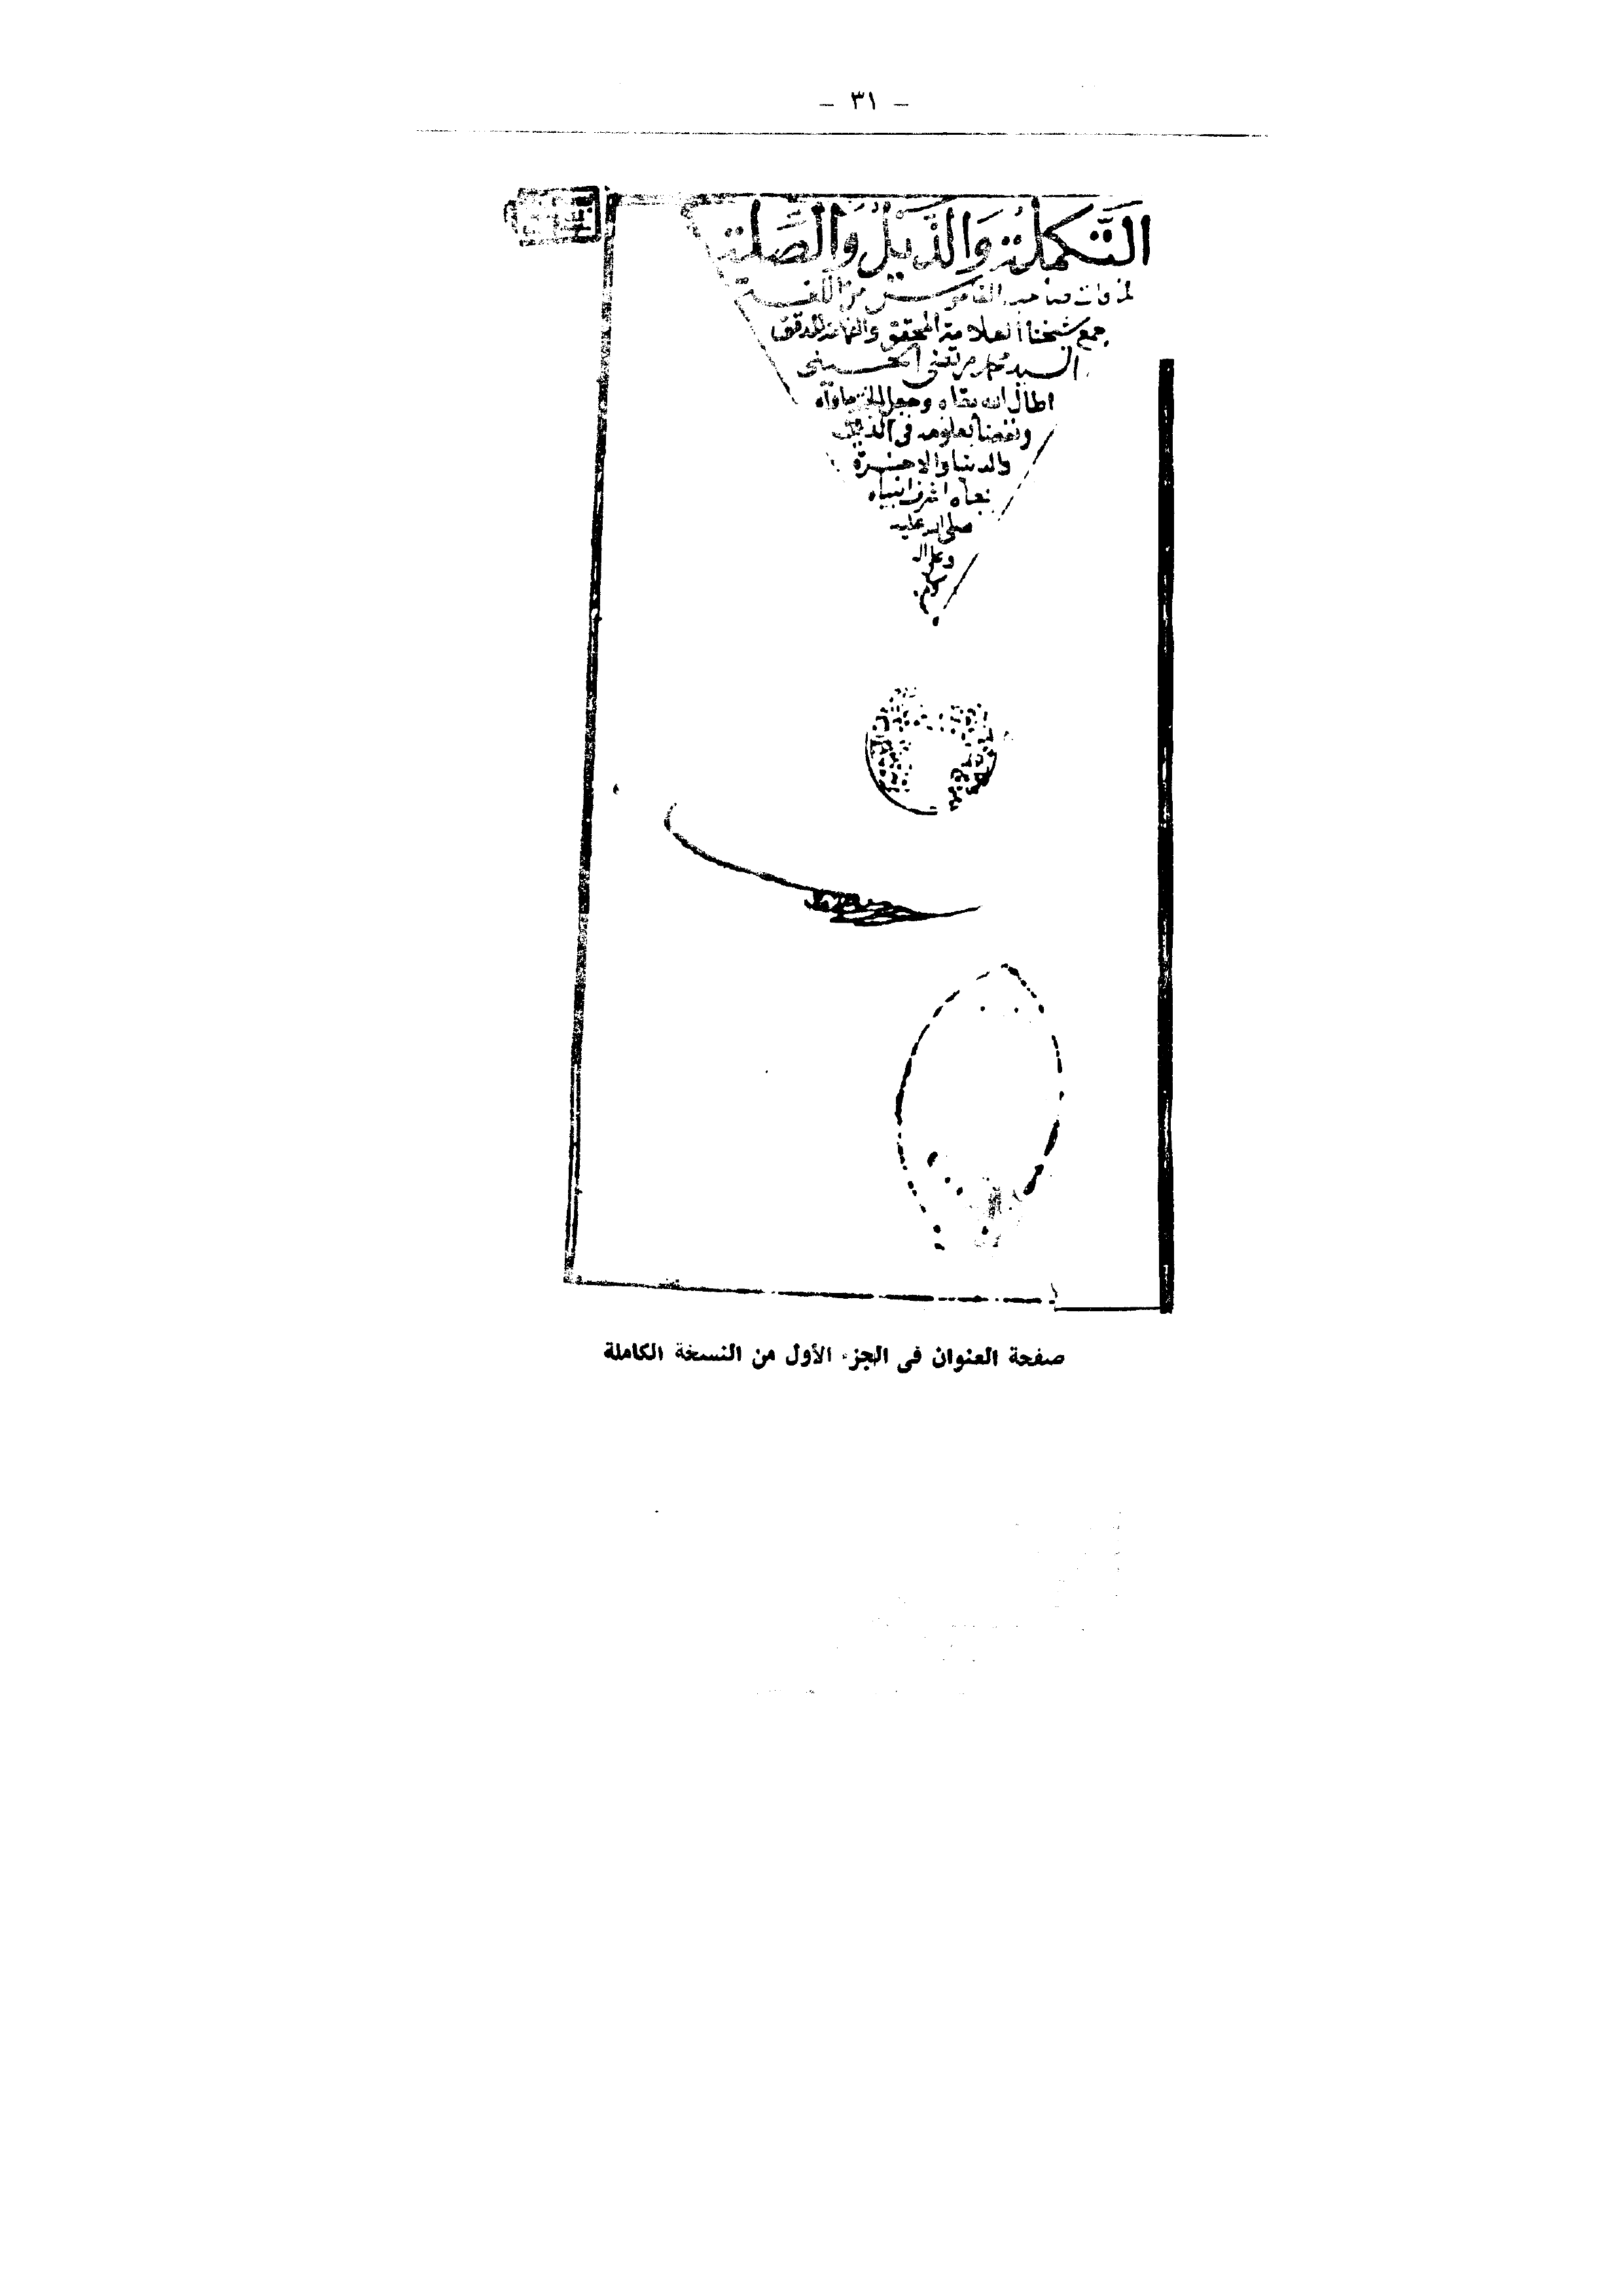 - ٣١ -
التَّكملة وَالذَّيلُ وَالصِّلة
لما فات صاحب القاموس من اللغة
جمع شيخنا العلامة المحقق والفهامة المدقق
السيد محمد مرتضى الحسينى
اطال الله بقاه وجعل الجنة ماواه
ونفعنا بعلومه فى الدين
والدنيا والاخرة
بجاه اشرف انبياه
صلى الله عليه
وعلى اله
صفحة العنوان فى الجزء الأول من النسخة الكاملة